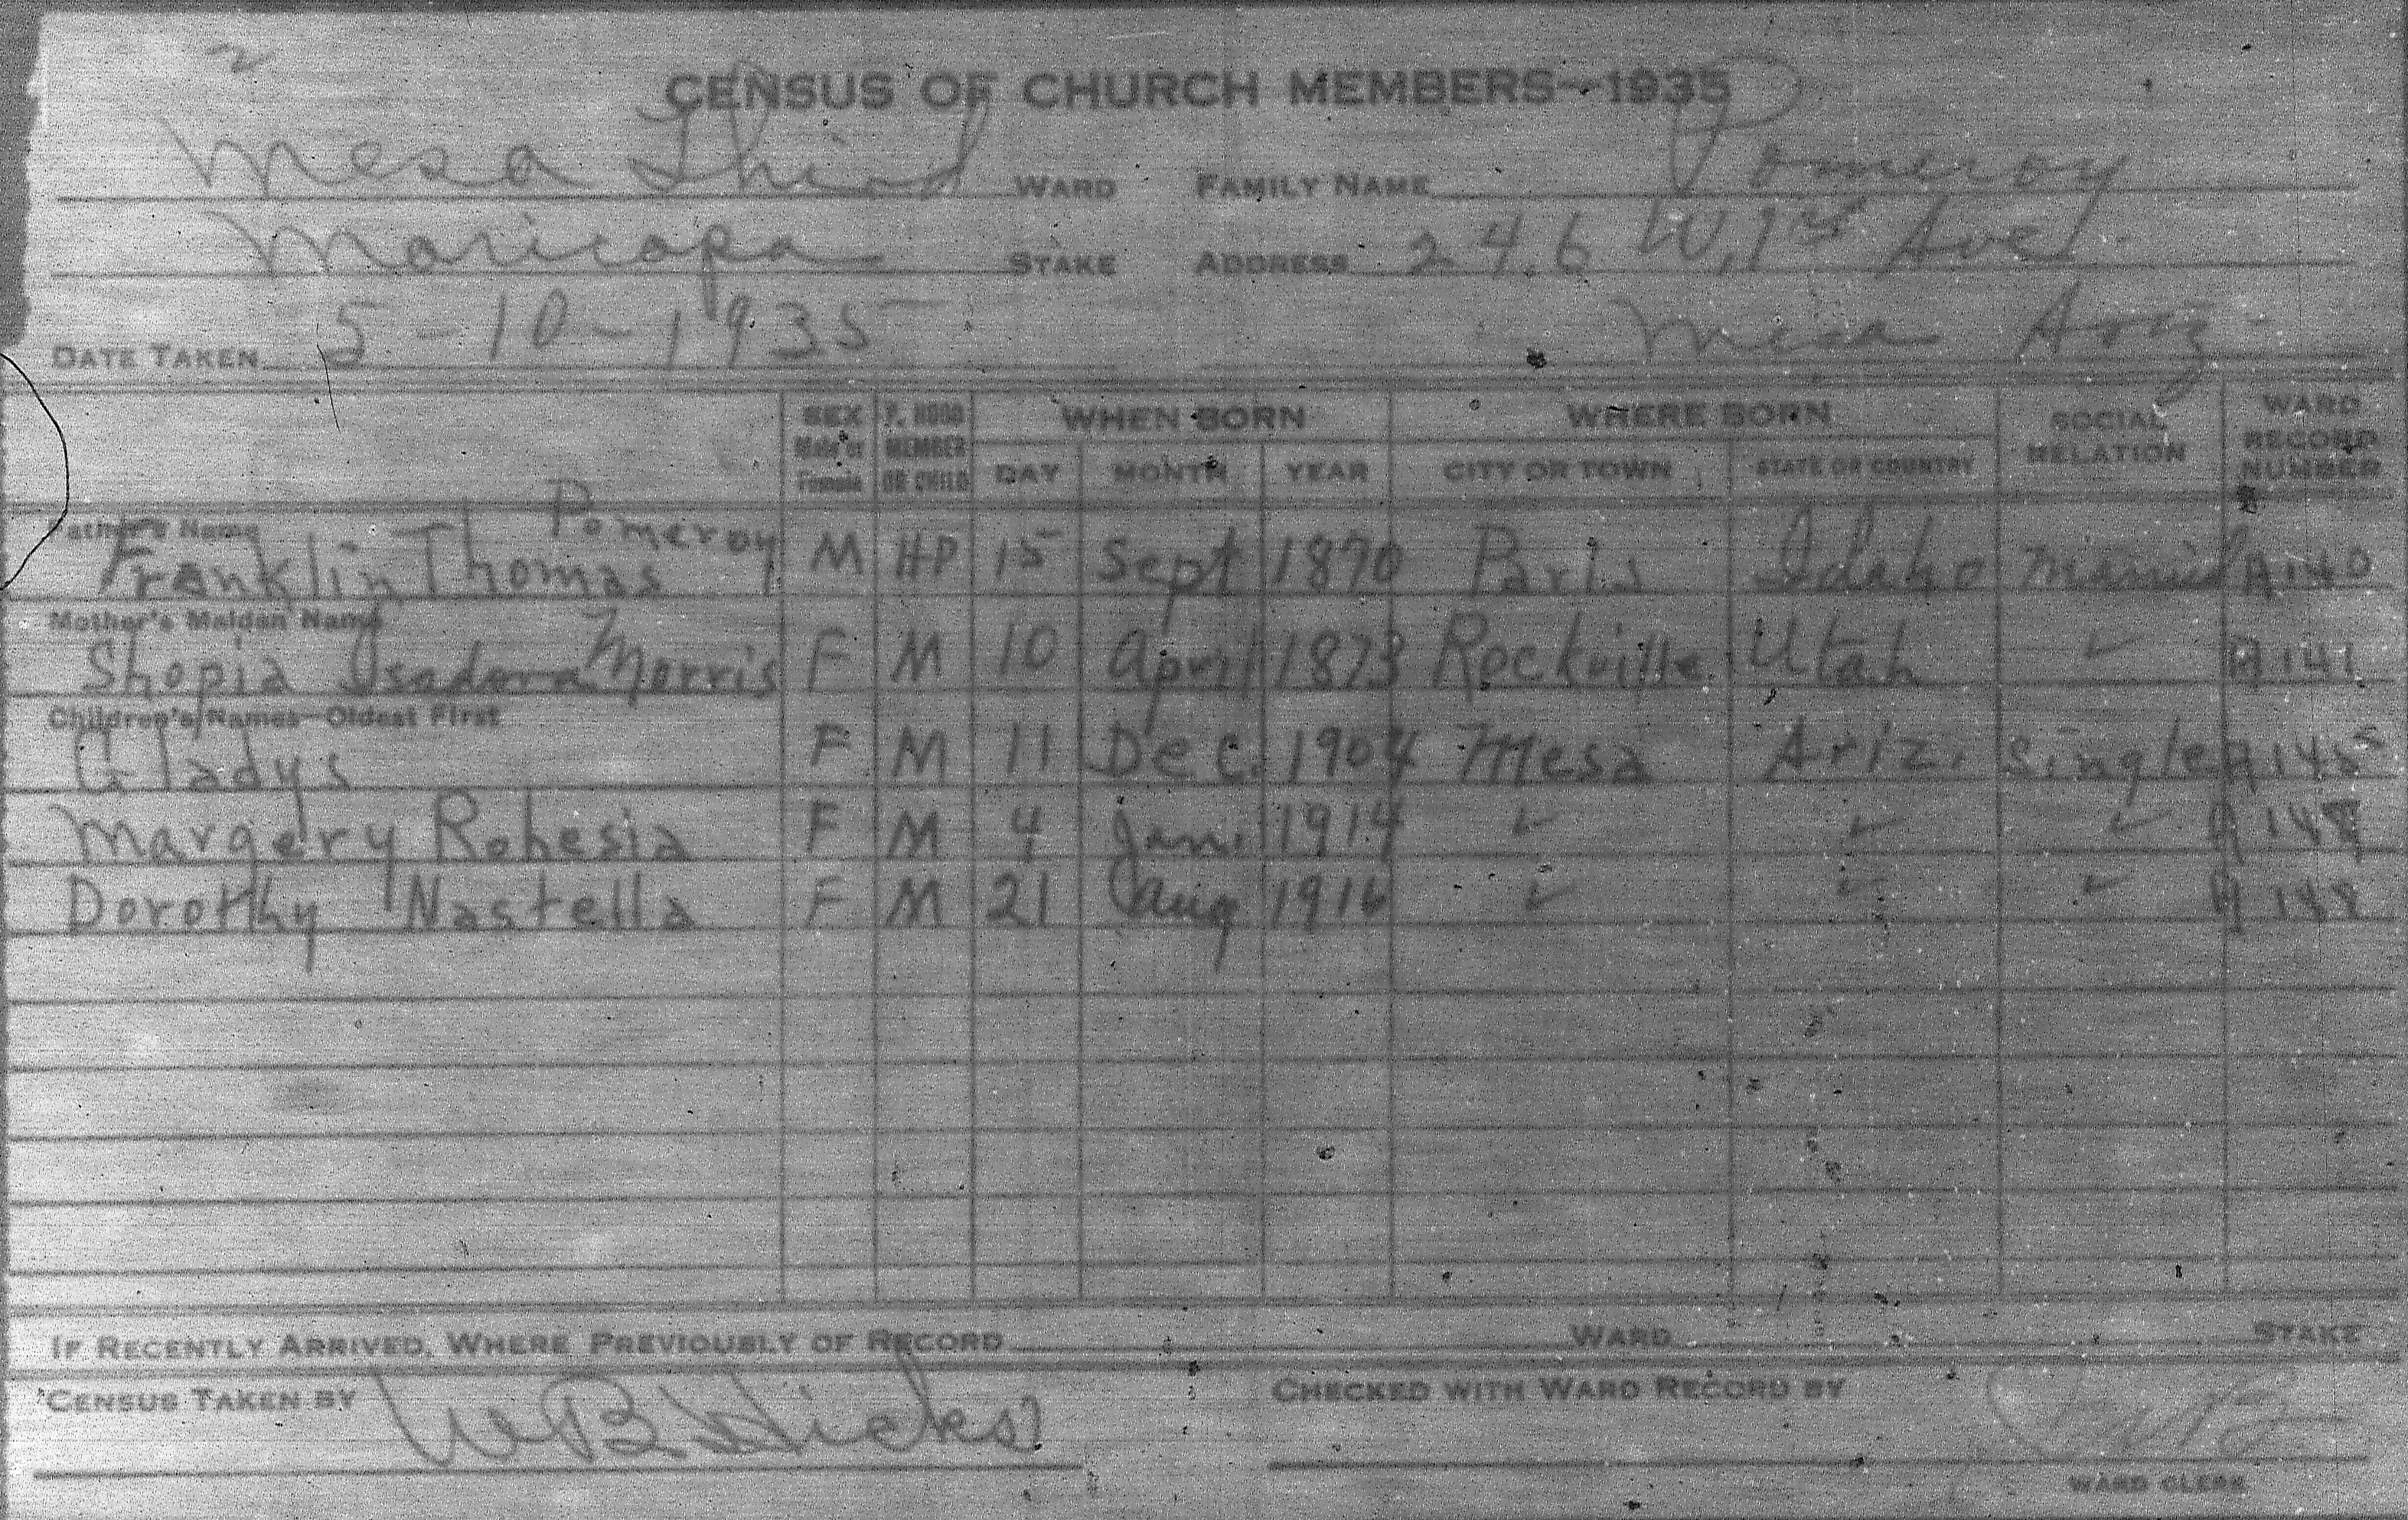 2
CENSUS OF CHURCH MEMBERS—1935
Mesa Third WARD FAMILY NAME Pomeroy
Maricopa STAKE ADDRESS 246 W, 1st Ave.
DATE TAKEN 5-10-1935 Mesa Ariz
SEX Male or Female P. HOOD MEMBER OR CHILD WHEN BORN WHERE BORN SOCIAL RELATION WARD RECORD NUMBER
DAY MONTH YEAR CITY OR TOWN STATE OR COUNTRY
Father's Name
Franklin Thomas Pomeroy M HP 15 Sept 1870 Paris Idaho Married A140
Mother's Maiden Name
Shopia Isadora Morris F M 10 April 1873 Rockville Utah ✓ A141
Children's Names—Oldest First
Gladys F M 11 Dec. 1904 Mesa Ariz. Single A145
Margery Rohesia F M 4 Jan. 1914 ✓ ✓ ✓ A148
Dorothy Nastella F M 21 Aug 1916 ✓ ✓ ✓
IF RECENTLY ARRIVED, WHERE PREVIOUSLY OF RECORD WARD STAKE
CENSUS TAKEN BY W B Hicks CHECKED WITH WARD RECORD BY
WARD CLERK